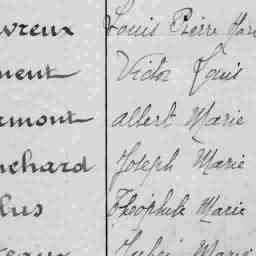 vreux Louis Pierre Mari
ment Victor Louis
rmont Albert Marie
nchard Joseph Marie
lus Théophile Marie
Marie